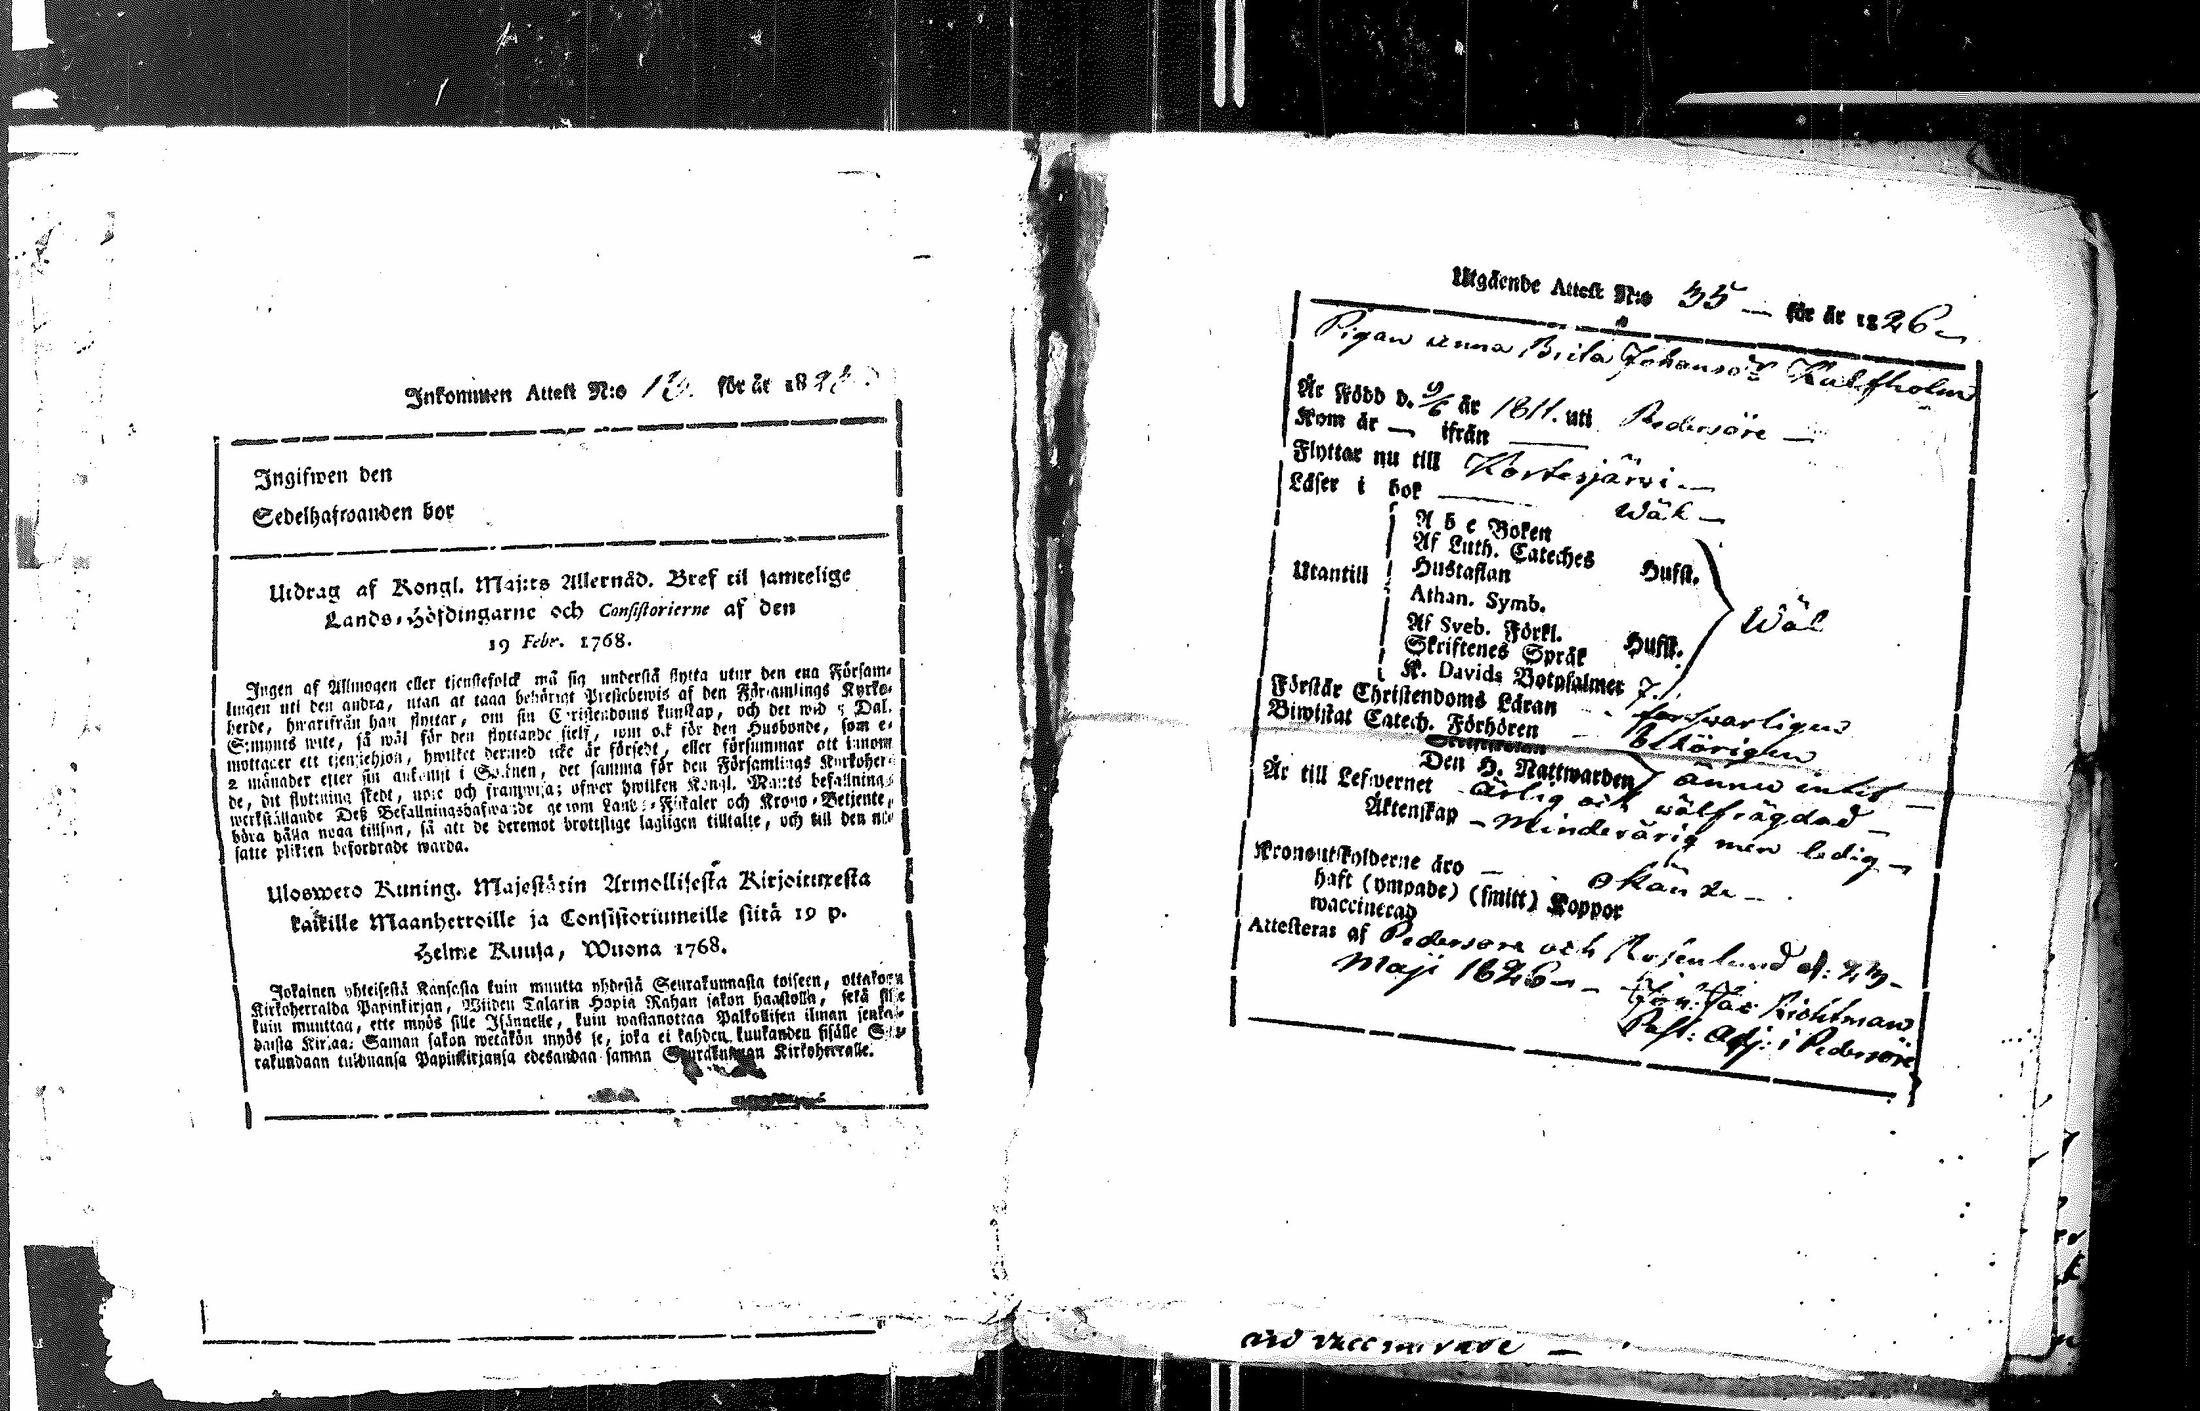 Inkommen Attest N:o 13. för år 182
Ingifwen den
Sedelhafwanden bor
Utdrag af Kongl. Maj:ts Allernåd. Bref til samtelige
Lands-Höfdingarne och Consistorierne af den
19 Febr. 1768.
Ingen af Allmogen eller tjenstefolck må sig understå flytta utur den ena Försam-
lingen uti den andra, utan at taga behörigt Prestebewis af den Församlings Kyrko-
herde, hwarifrån han flyttar, om sin Christendoms kunskap, och det wid 5 Dal.
S:mynts wite, så wäl för den flyttande sielf, som ock för den Husbonde, som e-
mottager ett tjenstehjon, hwilket dermed icke är försedt, eller försummar att innom
2 månader efter sin ankomst i Socknen, det samma för den Församlings Kyrkoher-
de, dit flyttning skedt, upte och framwisa; öfwer hwilken Kongl. Maj:ts befallning
werkställande Deß Befallningshafwande genom Lands-Fiskaler och Krono-Betjente,
böra hålla noga tillsyn, så att de deremot brottslige lagligen tilltalte, och till den ut-
satte plikten befordrade warda.
Ulosweto Kuning. Majestätin Armollisesta Kirjoituxesta
kaikille Maanherroille ja Consistoriumeille siitä 19 p.
Helme Kuusa, Wuona 1768.
Jokainen yhteisestä Kansasta kuin muutta yhdestä Seurakunnasta toiseen, ottakoon
Kirkoherralda Papinkirjan, Wiiden Talarin Hopia Rahan sakon haastolla, sekä sille
kuin muuttaa, ette myös sille Isännelle, kuin wastanottaa Palkollisen ilman senka-
daista Kirjaa: Saman sakon wetäkön myös se, joka ei kahden kuukauden sisälle Seu-
rakundaan tulduansa Papinkirjansa edesandaa saman Seurakunnan Kirkoherralle.
Utgående Attest N:o 35 — för år 1826 —
Pigan Anna Brita Johansdr Kalfholm
År född d. 9/6 år 1811. uti Pedersöre —
Kom år — ifrån ———
Flyttar nu till Kortesjärwi —
Läser i bok ——— Wäl —
A b c Boken
Af Luth. Cateches Hufst.
Utantill Hustaflan
Athan. Symb. Wäl
Af Sveb. Förkl. Hufst.
Skriftenes Språk
K. Davids Botpsalmer 7.
Förstår Christendoms Läran - - förswarligen
Biwistat Catech. Förhören - behörigen
Den H. Nattwarden ännu intet —
Är till Lefwernet - ärlig och wälfrägdad —
Äktenskap - Minderårig men ledig —
Kronoutskylderne äro — okända —
haft (ympade) (smitt) Koppor
waccinerad
Attesteras af Pedersöre och Rosenlund d: 23
Maji 1826 — Joh: Jac Richtman
Past: Adj: i Pedersöre